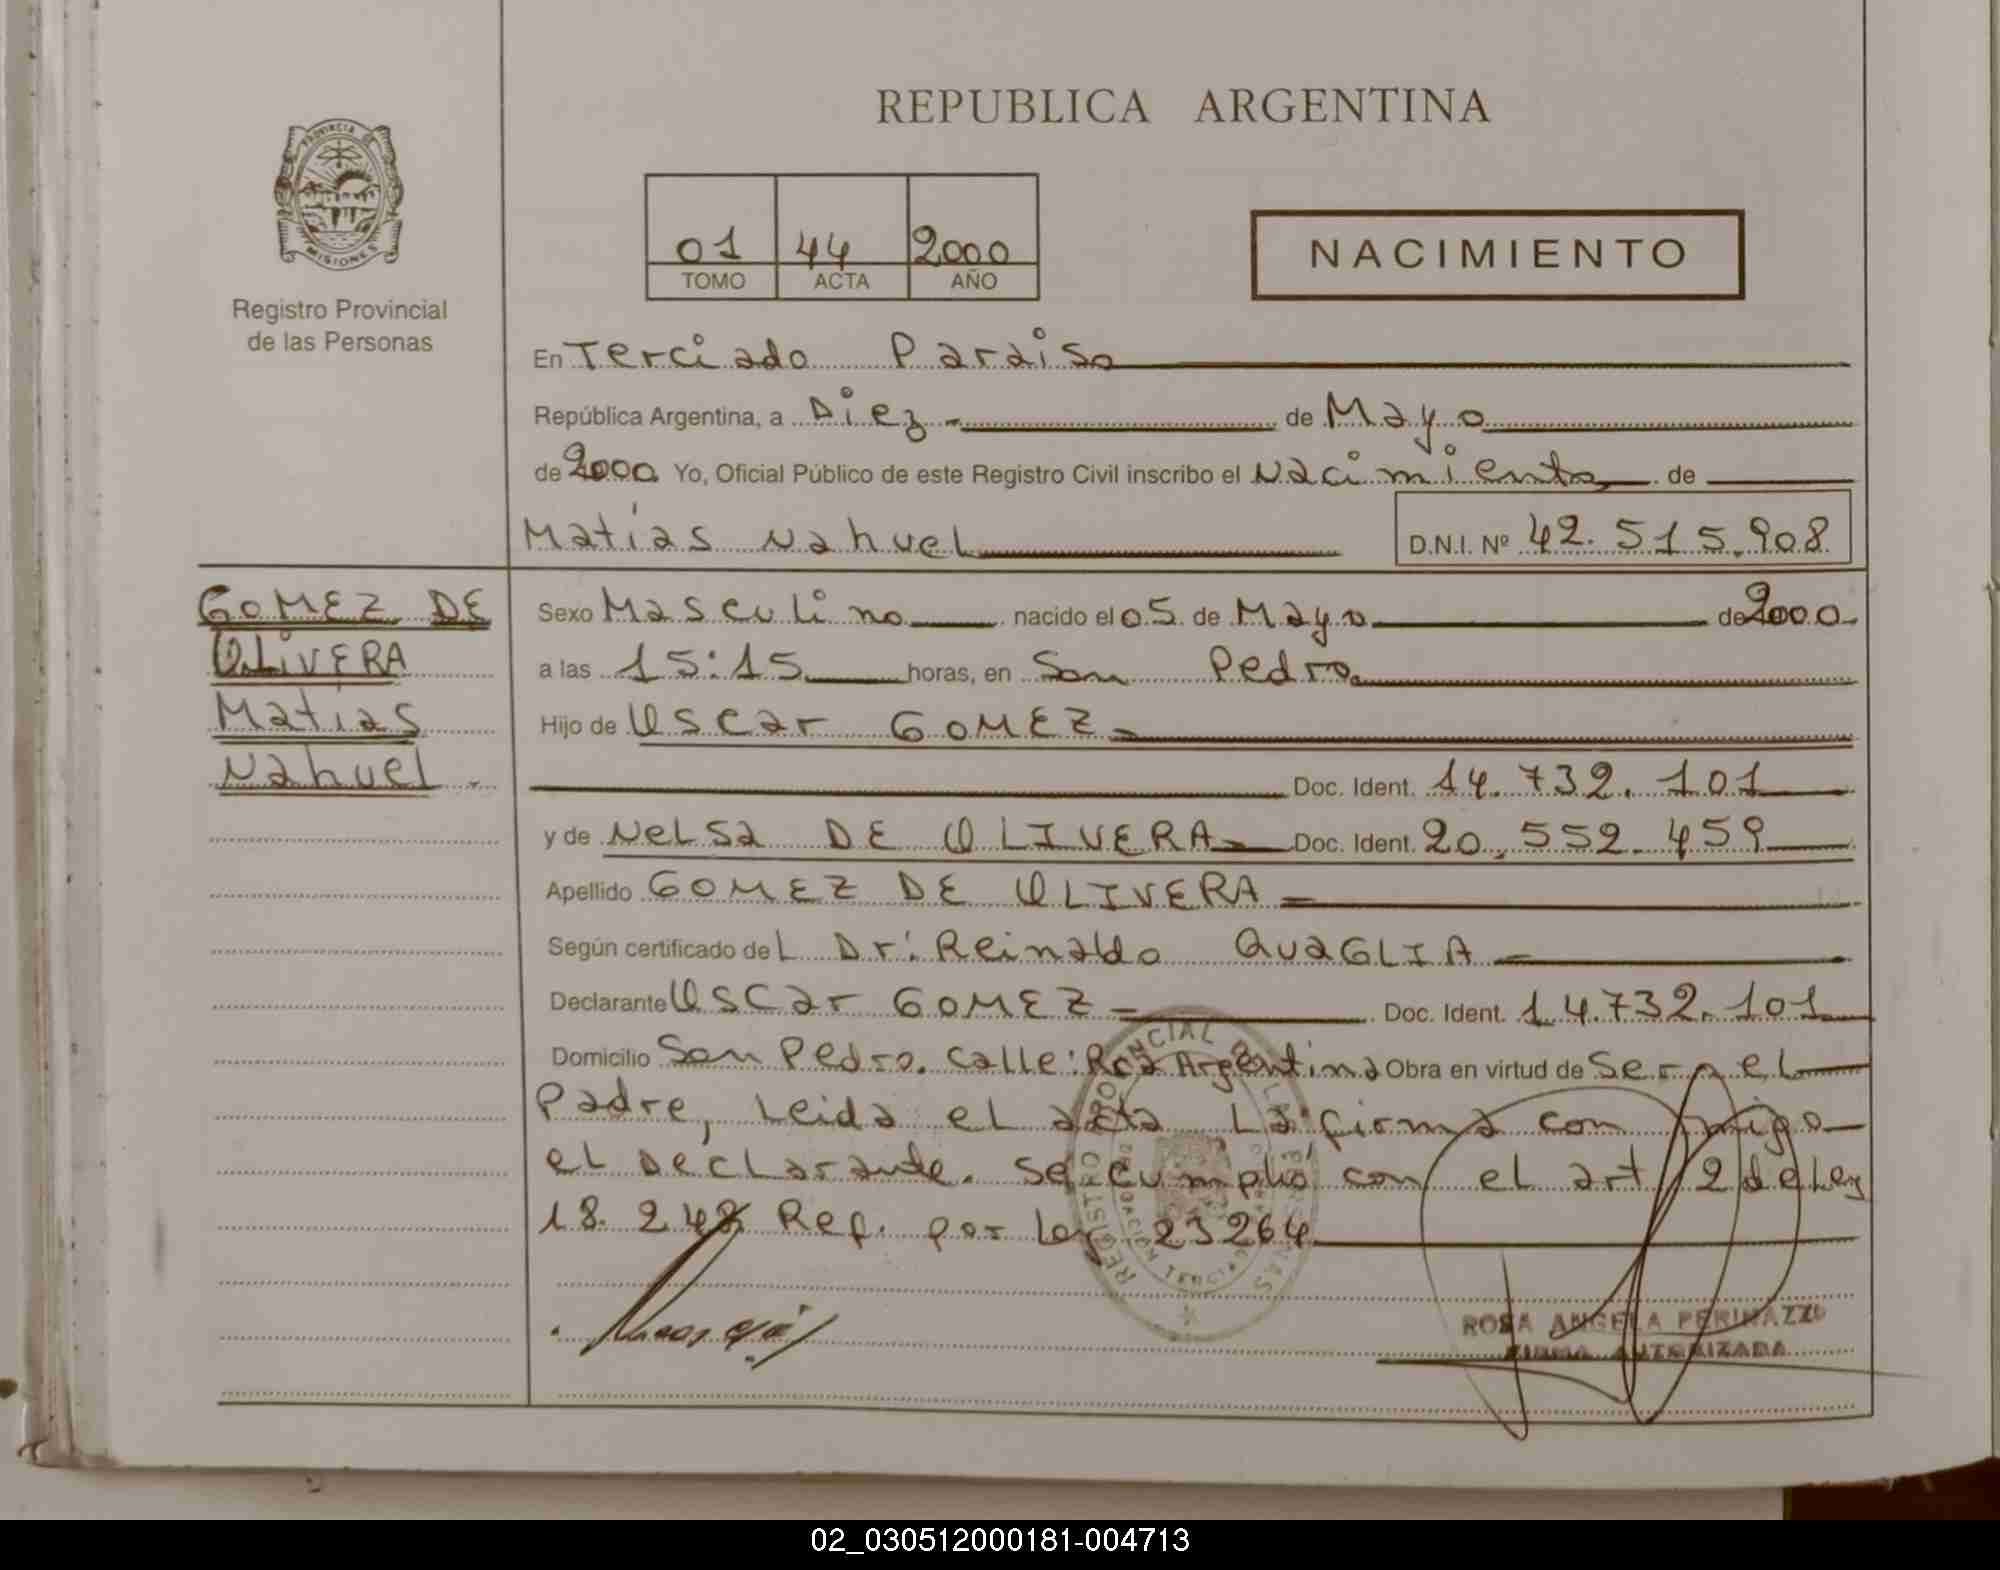 REPUBLICA ARGENTINA
PROVINCIA DE MISIONES
Registro Provincial
de las Personas
01 44 2000
TOMO ACTA AÑO
NACIMIENTO
En Terciado Paraiso
República Argentina, a Diez de Mayo
de 2000 Yo, Oficial Público de este Registro Civil inscribo el Nacimiento de
Matías Nahuel D.N.I. Nº 42.515.908
GOMEZ DE
OLIVERA
Matías
Nahuel.
Sexo Masculino nacido el 05 de Mayo de 2000
a las 15:15 horas, en San Pedro
Hijo de Oscar GOMEZ
Doc. Ident. 14.732.101
y de Nelsa DE OLIVERA Doc. Ident. 20.552.459
Apellido GOMEZ DE OLIVERA
Según certificado del Dr: Reinaldo QUAGLIA
Declarante Oscar GOMEZ Doc. Ident. 14.732.101
Domicilio San Pedro. Calle: Rca Argentina Obra en virtud de Ser el
Padre, Leida el acta La firma con migo
el Declarante. Se cumplió con el art 2 de Ley
18.248 Ref. por Ley 23264
REGISTRO PROVINCIAL DE LAS PERSONAS
ROSA ANGELA PERINAZZO
FIRMA AUTORIZADA
02_030512000181-004713